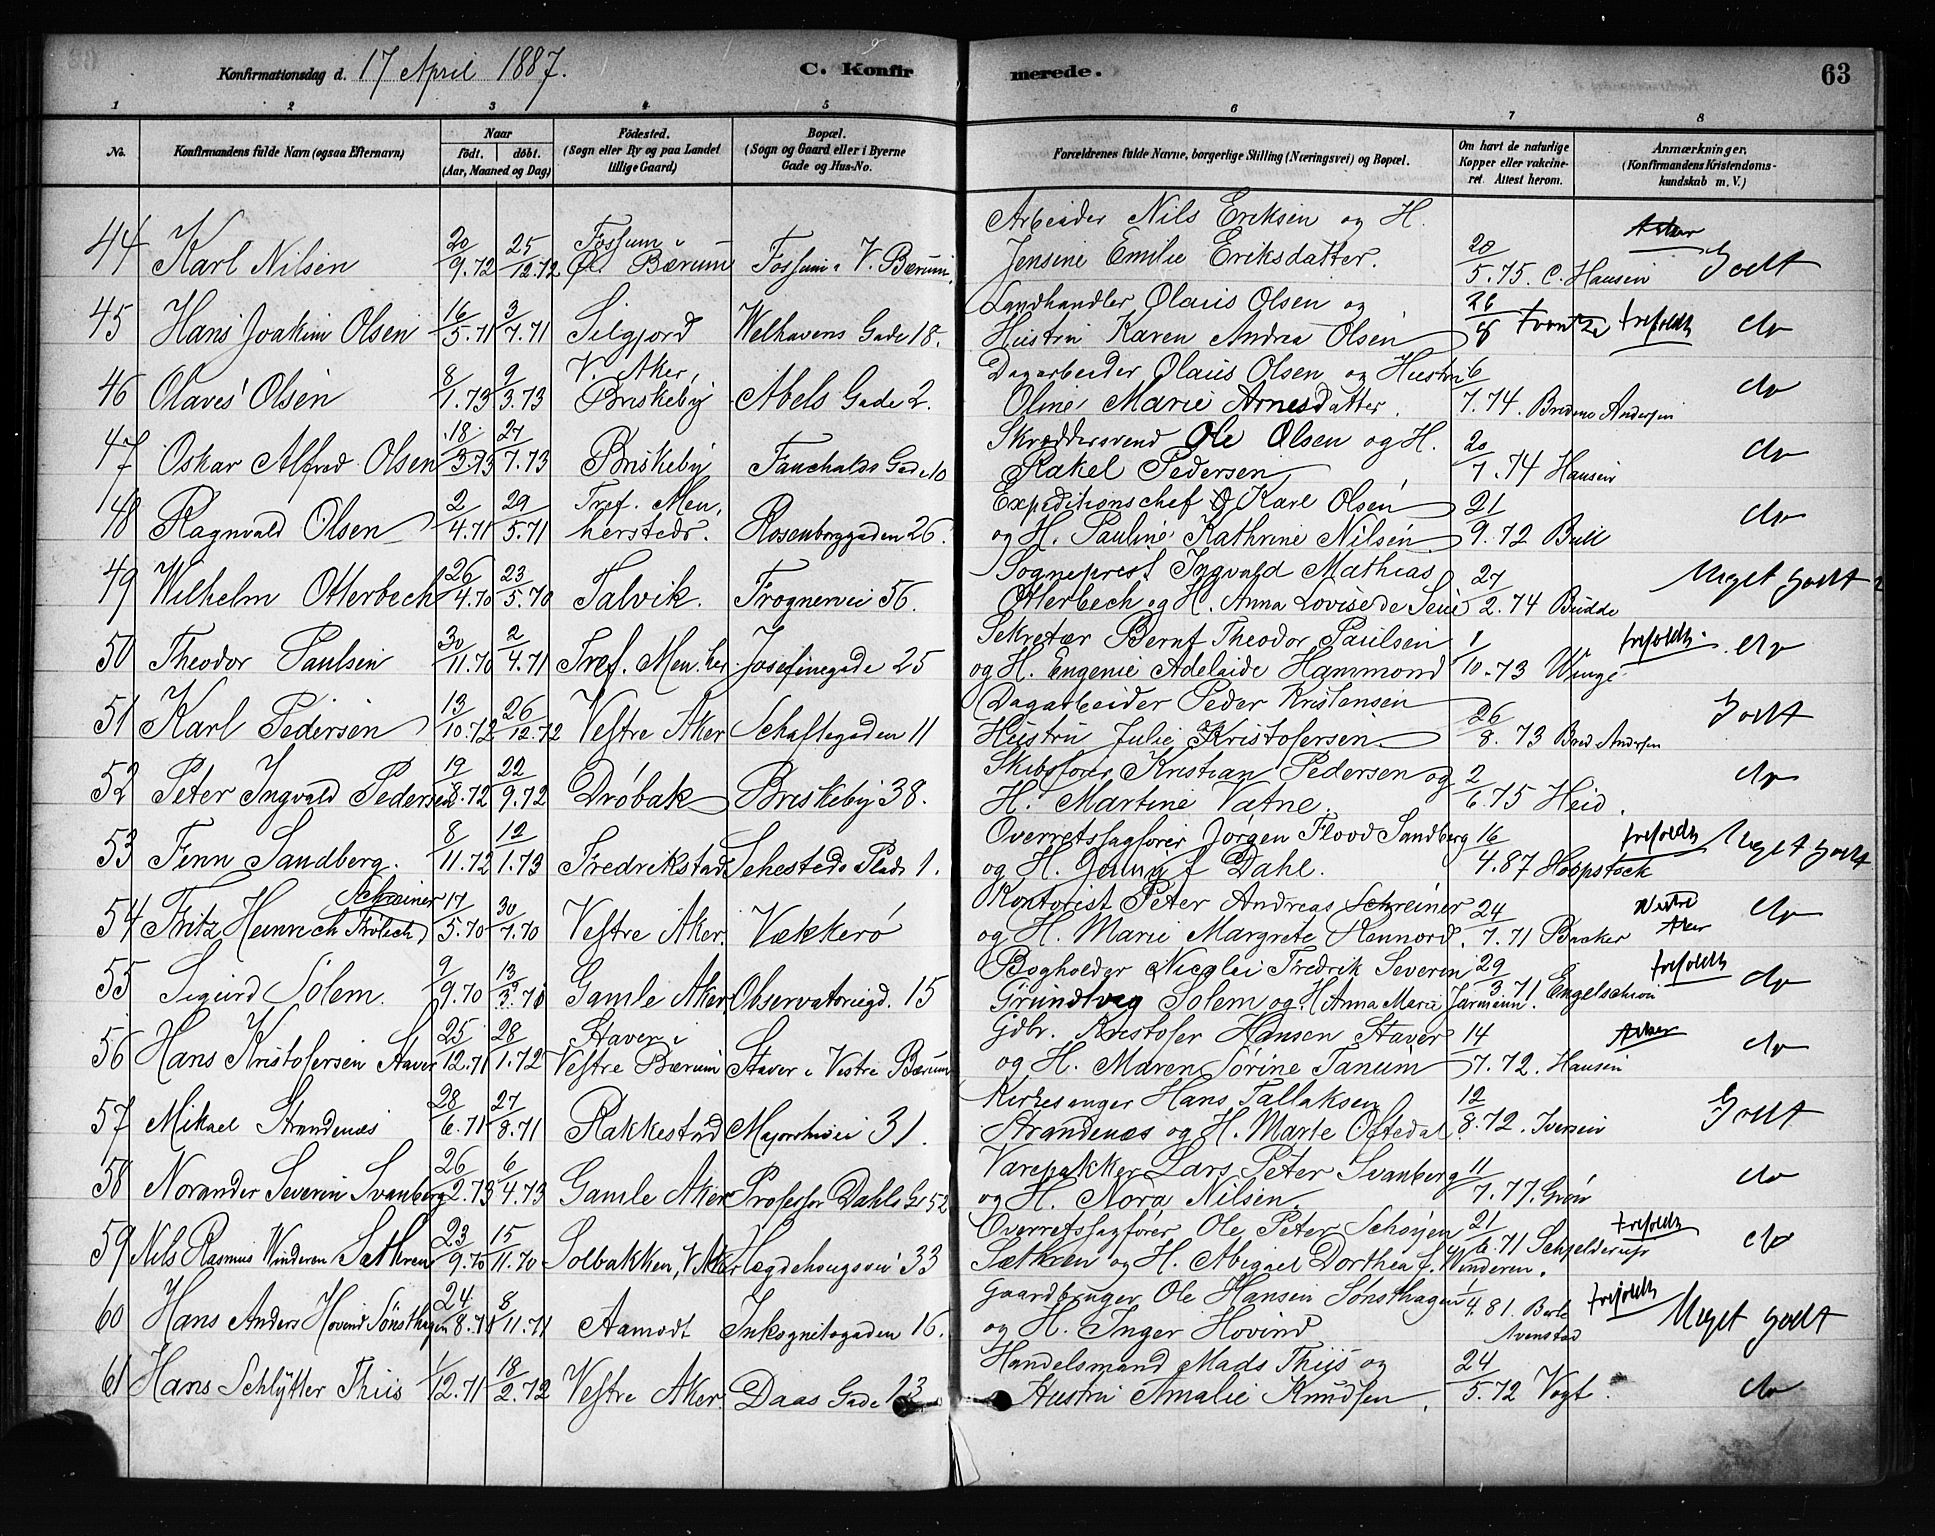 Konfirmationsdag d. 17 April 1887. C. Konfirmerede. 63
1 2 3 4 5 6 7 8
No. Konfirmandens fulde Navn (ogsaa Efternavn) Naar født. døbt. (Aar, Maaned og Dag) Fødested. (Sogn eller By og paa Landet tillige Gaard) Bopæl. (Sogn og Gaard eller i Byerne Gade og Hus-No. Forældrenes fulde Navne, borgerlige Stilling (Næringsvei) og Bopæl. Om havt de naturlige Kopper eller vaccineret. Attest herom. Anmærkninger. (Konfirmandens Kristendomskundskab m. V.)
Arbeider Nils Eriksen og H. Aker
44 Karl Nilsen 20/9.72 25/12.72 Fossum i Ø. Bærum Fossum i V. Bærum. Jensine Emilie Eriksdatter. 20/5.75. C. Hansen Godt
Landhandler Olaus Olsen og
45 Hans Joakim Olsen 16/5.71 3/7.71 Silgjord Welhavens Gade 18. Hustru Karen Andrea Olsen 26/8 do
V. Aker, Dagarbeider Olaus Olsen og Hustru
46 Olaves Olsen 8/1.73 9/3.73 Briskeby Abels Gade 2. Oline Marie Arnesdatter. 6/7.74. Andersen do
Skræddersvend Ole Olsen og H.
47 Oskar Alfred Olsen 18/3.73 27/7.73 Briskeby Fauchalds Gade 10 Rakel Pedersen 20/7.74 Hansen do
Tref. Men. Expeditionschef Karl Olsen
48 Ragnvald Olsen 2/4.71 29/5.71 herstedr. Rosenborggaden 26. og H. Pauline Kathrine Nilsen 21/9.72 Bull do
Sogneprest Ingvald Mathias
49 Wilhelm Otterbech 26/4.70 23/5.70 Talvik. Frognervei 56. Otterbech og H. Anna Lovise de Seue 27/2.74 Budde Meget godt
Sekretær Bernt Theodor Paulsen
50 Theodor Paulsen 30/11.70 2/4.71 Tref. Men. her. Josefinegade 25 og H. Eugenie Adelaide Hammond 1/10.73 Winge do
Dagarbeider Peder Kristensen
51 Karl Pedersen 13/10.72 26/12.72 Vestre Aker Schaftegaden 11 Hustru Julie Kristofersen. 26/8.73 Andersen Godt
Skibsfører Kristian Pedersen og
52 Peter Ingvald Pedersen 19/8.72 22/9.72 Drøbak Briskeby 38. H. Martine Vatne. 2/6.75 Heid. do
Overretssagfører Jørgen Flood Sandberg
53 Finn Sandberg. 8/11.72 12/1.73 Fredrikstad Sehesteds Plads 1. og H. Jenny f Dahl. 16/4.87 Hoppstock Meget godt
Schreiner Kontorist Peter Andreas Schreiner Vestre
54 Fritz Heinrich Frölich 17/5.70 30/7.70 Vestre Aker. Vækkerø og H. Marie Margrete Rennord. 24/7.71 Baaker Aker do
Bogholder Nicolai Fredrik Severin
55 Sigurd Solem. 9/9.70 13/3.70 Gamle Aker Observatoriegd. 15 Grundtvig Solem og H. Anna Marie 29/3 71. Engelschiøn do
Staver i Gdbr. Kristofer Hansen Staver Aker
56 Hans Kristofersen Staver 25/12.71 28/1.72 Vestre Bærum Staver i Vestre Bærum og H. Maren Sørine Tanum 14/7.72. Hansen do
Kirkesanger Hans Tallaksen
57 Mikael Strandenæs 28/6.71 27/8.71 Rakkestad 31. Strandenæs og H. Marte Oftedal. 12/8.72. Iversen Godt
Varepakker Lars Peter Svanberg
58 Norander Severin Svanberg 26/2.73 6/4.73 Gamle Aker Professor Dahls G. 52 og H. Nora Nilsen. 11/7.77. Grøn do
Overretssagfører Ole Peter Schøyen
59 Nils Rasmus Winderen Sæthren 23/9.70 15/11.70 Solbakken, V. Aker Hægdehougsvei 33 Sæthren og H. Abigael Dorthea f. Winderen. 21/6.71 Schjelderup do
Gaardbruger Ole Hansen Sønsthagen
60 Hans Anders Hovind Sønsthagen 24/8.71 8/11.71 Aamodt Inkognitogaden 16. og H. Inger Hovind 1/4.81. Meget godt
Handelsmand Mads Thiis og
61 Hans Schlytter Thiis 1/12.71 18/2.72 Vestre Aker Daas Gade 13 Hustru Amalie Knudsen. 24/5.72 Vogt. do